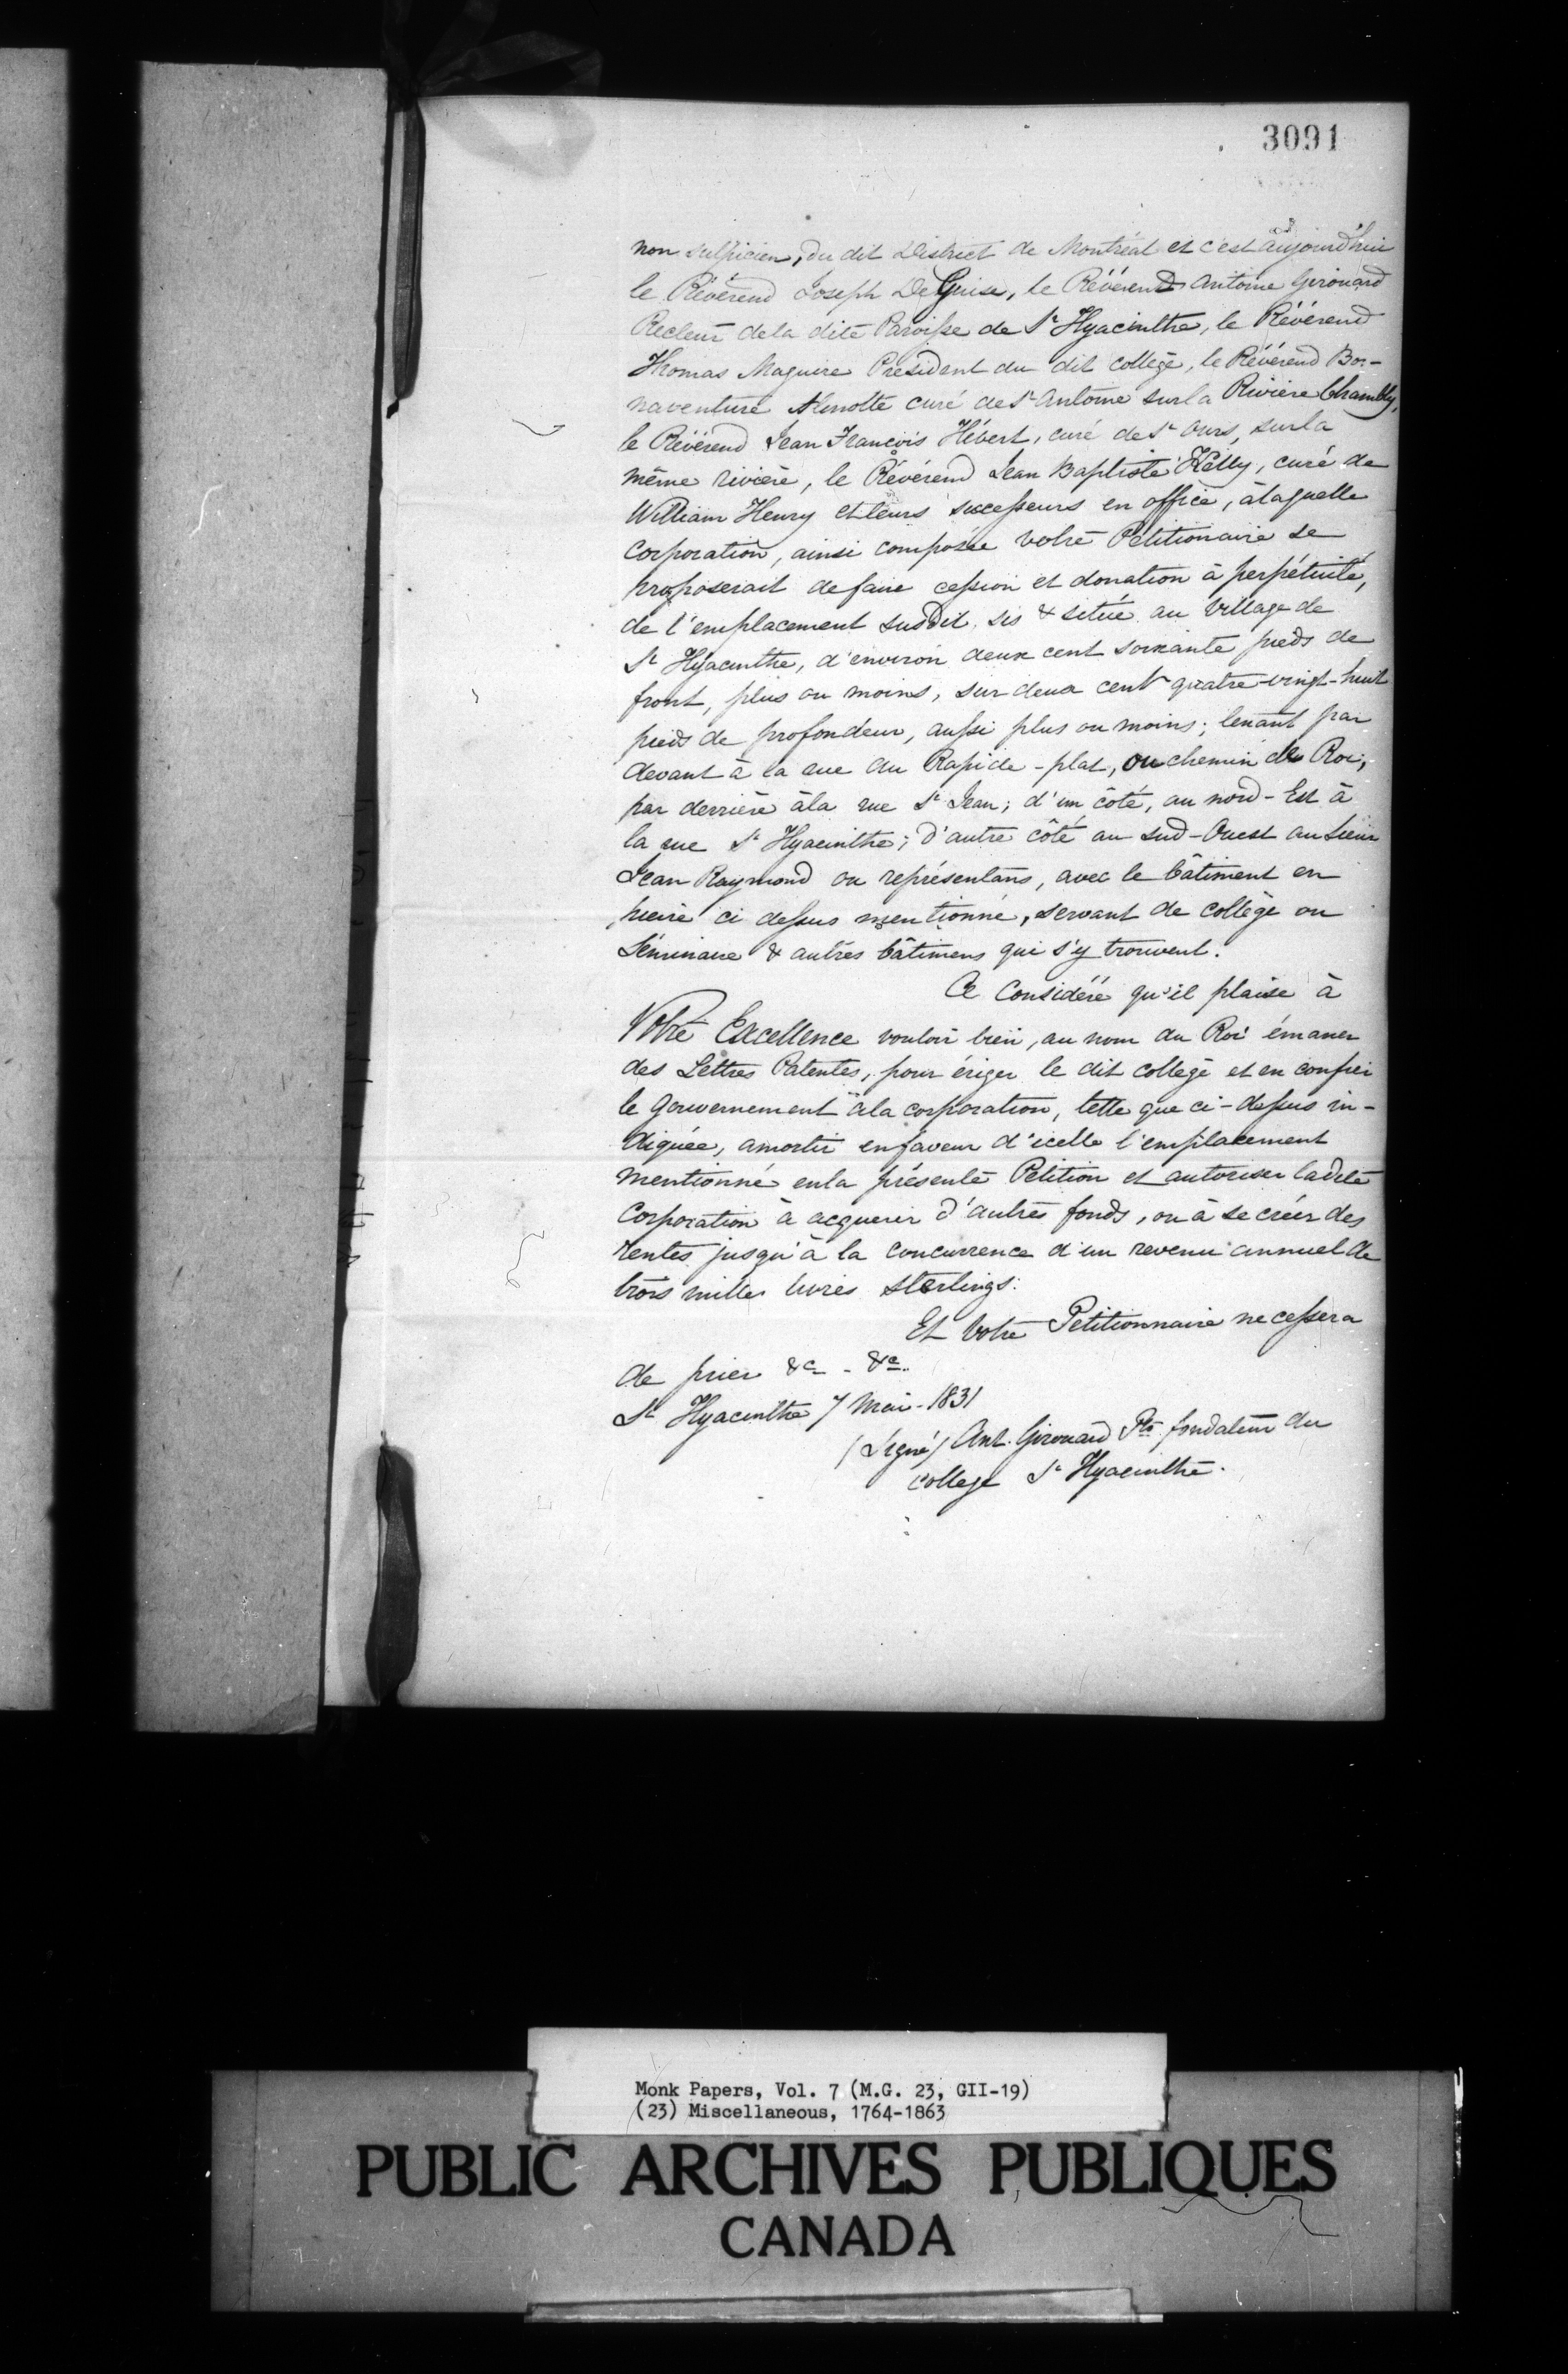 3091
non sulpicien, du dit District de Montréal et c'est aujourd'hui
le Révérend Joseph DeGuise, le Révérend Antoine Girouard
Recteur de la dite Paroisse de St Hyacinthe, le Révérend
Thomas Maguire Président du dit collège, le Révérend Bon-
naventure Alinotte curé de St Antoine sur la Rivière Chambly,
le Révérend Jean François Hébert, curé de St Ours, sur la
même rivière, le Révérend Jean Baptiste Kelly, curé de
William Henry et leurs successeurs en office, à laquelle
Corporation, ainsi composée votre Pétitionaire se
proposerait de faire cession et donation à perpétuité,
de l'emplacement susdit, sis & situé au Village de
St Hyacinthe, d'environ deux cent soixante pieds de
front, plus ou moins, sur deux cent quatre-vingt-huit
pieds de profondeur, aussi plus ou moins; tenant par
devant à la rue du Rapide-plat, ou chemin du Roi,
par derrière à la rue St Jean; d'un côté, au nord-Est à
la rue St Hyacinthe; d'autre côté au Sud-Ouest au Sieur
Jean Raymond ou représentans, avec le bâtiment en
pierre ci dessus mentionné, servant de collège ou
Séminaire & autres bâtimens qui s'y trouvent.
Ce Considéré qu'il plaise à
Votre Excellence vouloir bien, au nom du Roi émaner
des Lettres Patentes, pour ériger le dit collège et en confier
le Gouvernement à la corporation, telle que ci-dessus in-
diquée, amortir en faveur d'icelle l'emplacement
mentionné en la présente Pétition et autoriser la dite
Corporation à acquerir d'autres fonds, ou à se créer des
rentes jusqu'à la concurrence d'un revenu annuel de
trois mille livres sterlings.
Et Votre Pétitionnaire ne cessera
de prier &c - &c.
St Hyacinthe 7 Mai - 1831
(Signé) Ant. Girouard Ptre fondateur du
college St Hyacinthe.
Monk Papers, Vol. 7 (M.G. 23, GII-19)
(23) Miscellaneous, 1764-1863
PUBLIC ARCHIVES PUBLIQUES
CANADA